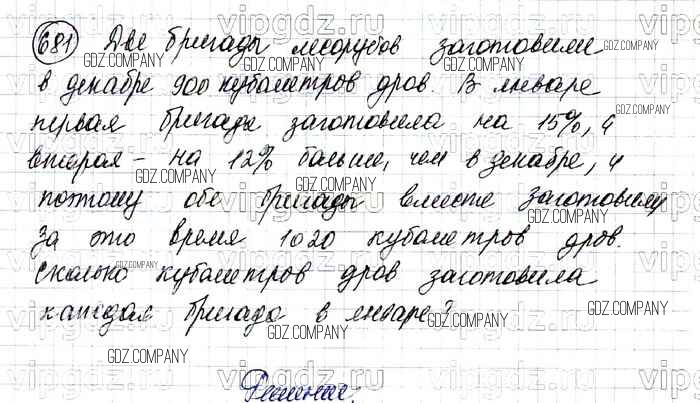 681 Две бригады лесорубов заготовили
в декабре 900 кубометров дров. В январе
первая бригада заготовила на 15%, а
вторая – на 12% больше, чем в декабре, и
поэтому обе бригады вместе заготовили
за это время 1020 кубометров дров.
Сколько кубометров дров заготовила
каждая бригада в январе?
Решение.
vipgdz.ru
GDZ.COMPANY